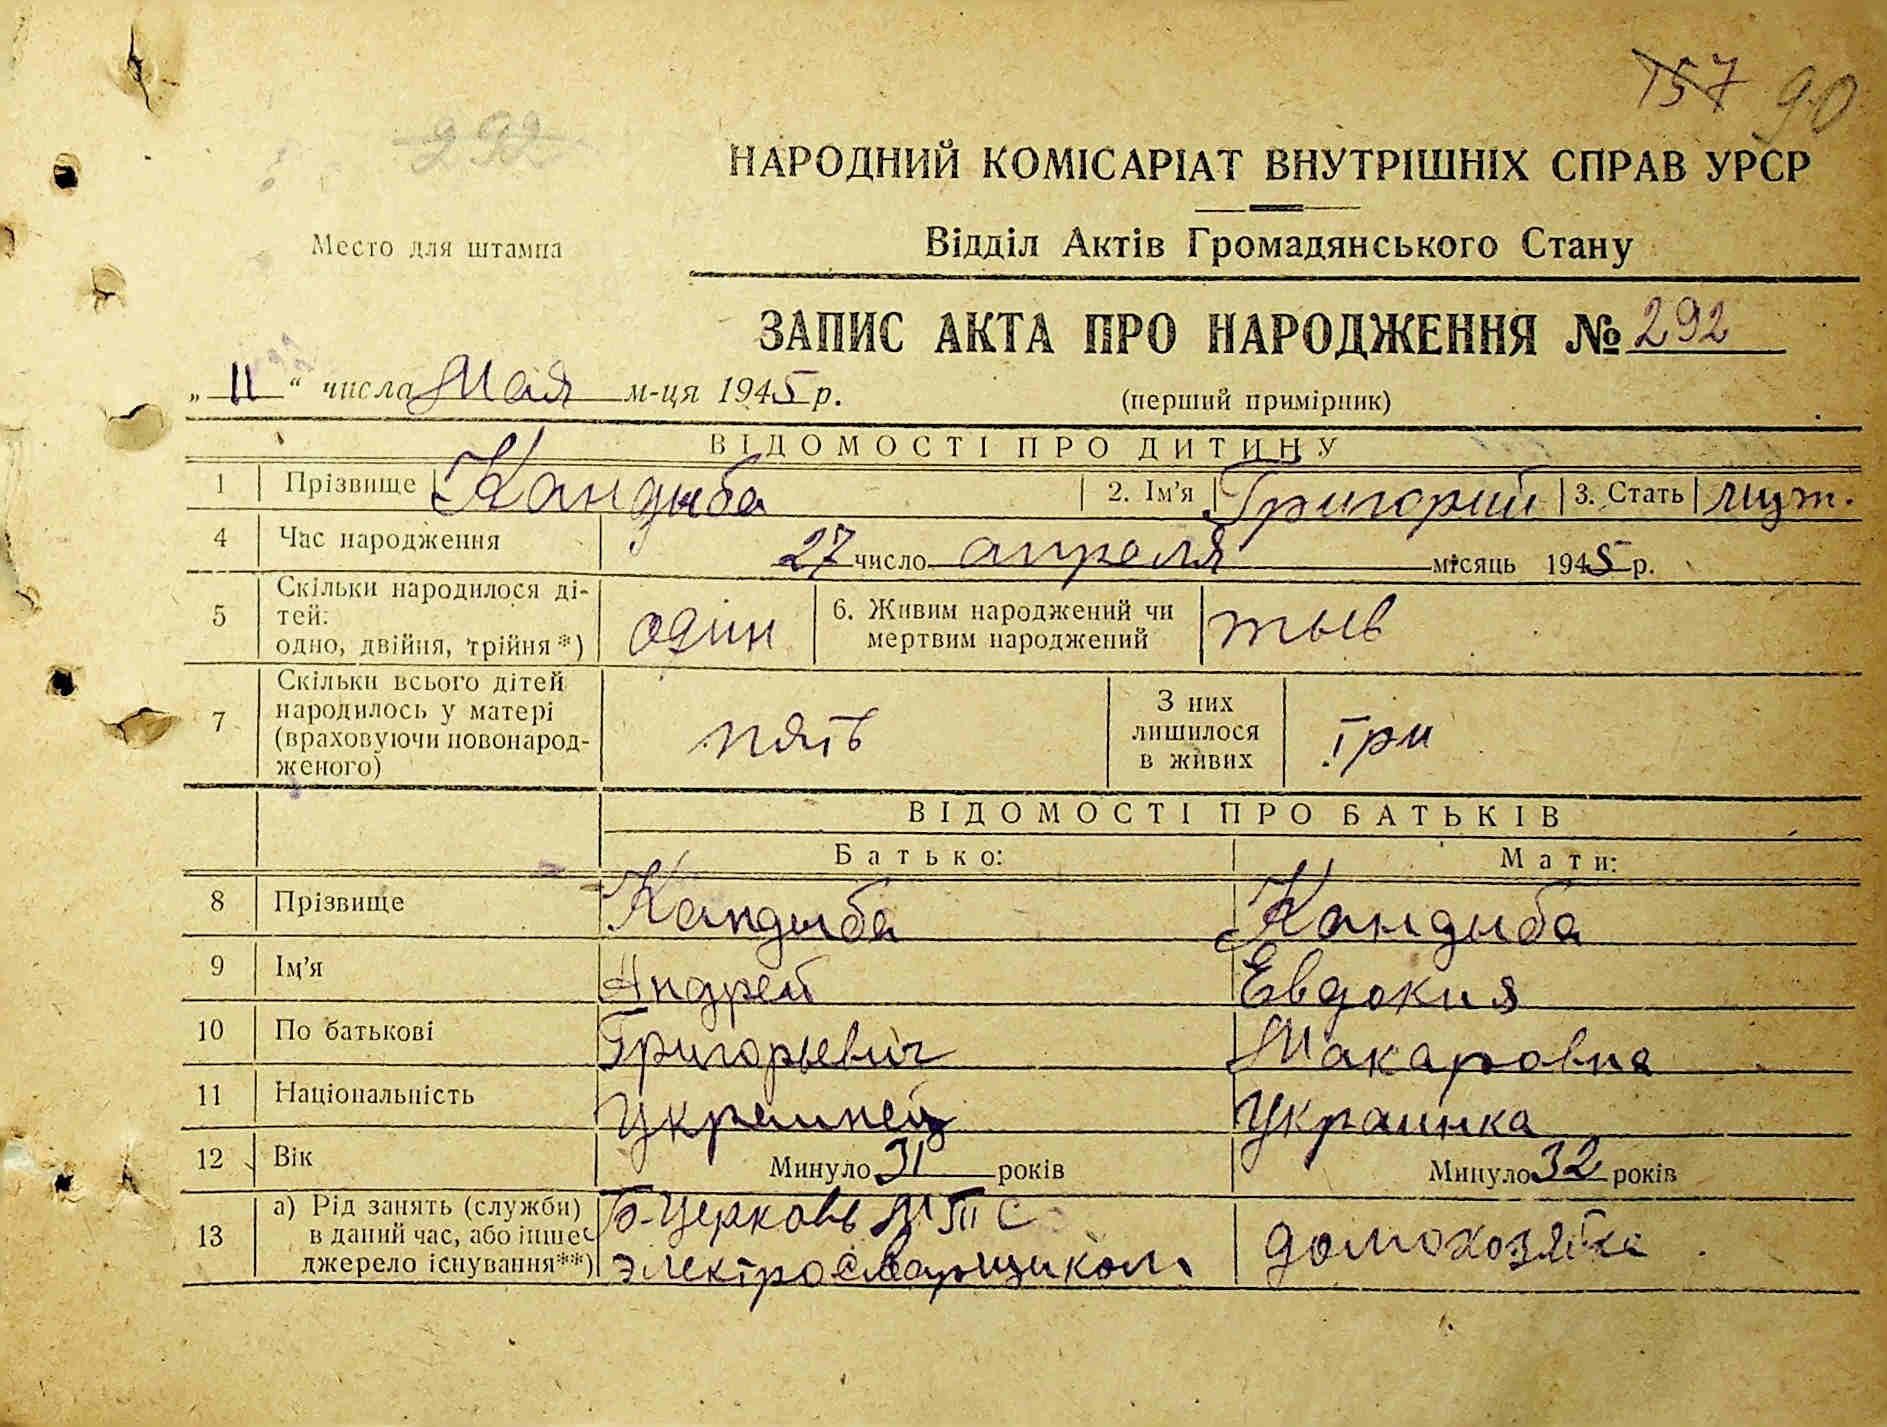 157 90
292
НАРОДНИЙ КОМІСАРІАТ ВНУТРІШНІХ СПРАВ УРСР
Место для штампа
Відділ Актів Громадянського Стану
ЗАПИС АКТА ПРО НАРОДЖЕННЯ № 292
„ 11 “ числа Мая м-ця 1945 р.
(перший примірник)
ВІДОМОСТІ ПРО ДИТИНУ
1 Прізвище Кандыба 2. Ім’я Григорий 3. Стать муж.
4 Час народження 27 число апреля місяць 1945 р.
5 Скільки народилося ді-
тей:
одно, двійня, трійня*) один
6. Живим народжений чи
мертвим народжений жыв
7 Скільки всього дітей
народилось у матері
(враховуючи новонарод-
женого) пять
З них
лишилося
в живих три
ВІДОМОСТІ ПРО БАТЬКІВ
Батько: Мати:
8 Прізвище Кандыба Кандыба
9 Ім’я Андрей Евдокия
10 По батькові Григорьевич Макаровна
11 Національність Украинец Украинка
12 Вік Минуло 31 років Минуло 32 років
13 а) Рід занять (служби)
в даний час, або інше
джерело існування**)
Б-Церковь МТС
электросварщиком
домохозяйка